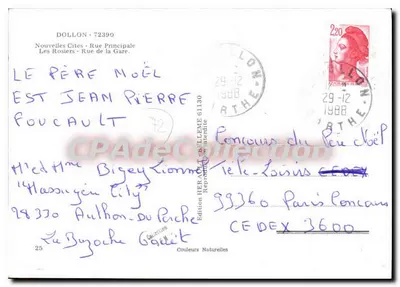 DOLLON - 72390
Nouvelles Cités - Rue Principale
Les Rosiers - Rue de la Gare.
LE PÈRE NOËL
EST JEAN PIERRE
FOUCAULT
Mr et Mme Bigey Lionnel
"Massuyere City"
28330 Authon-Du-Perche
La Bazoche Gouet
25
Couleurs Naturelles
2,20
DOLLON
29-12
1988
SARTHE
DOLLON
29-12
1988
SARTHE
Concours du Père Noël
Télé-Loisirs CEDEX
99360 Paris Concours
CEDEX 3600
CPADeCollection